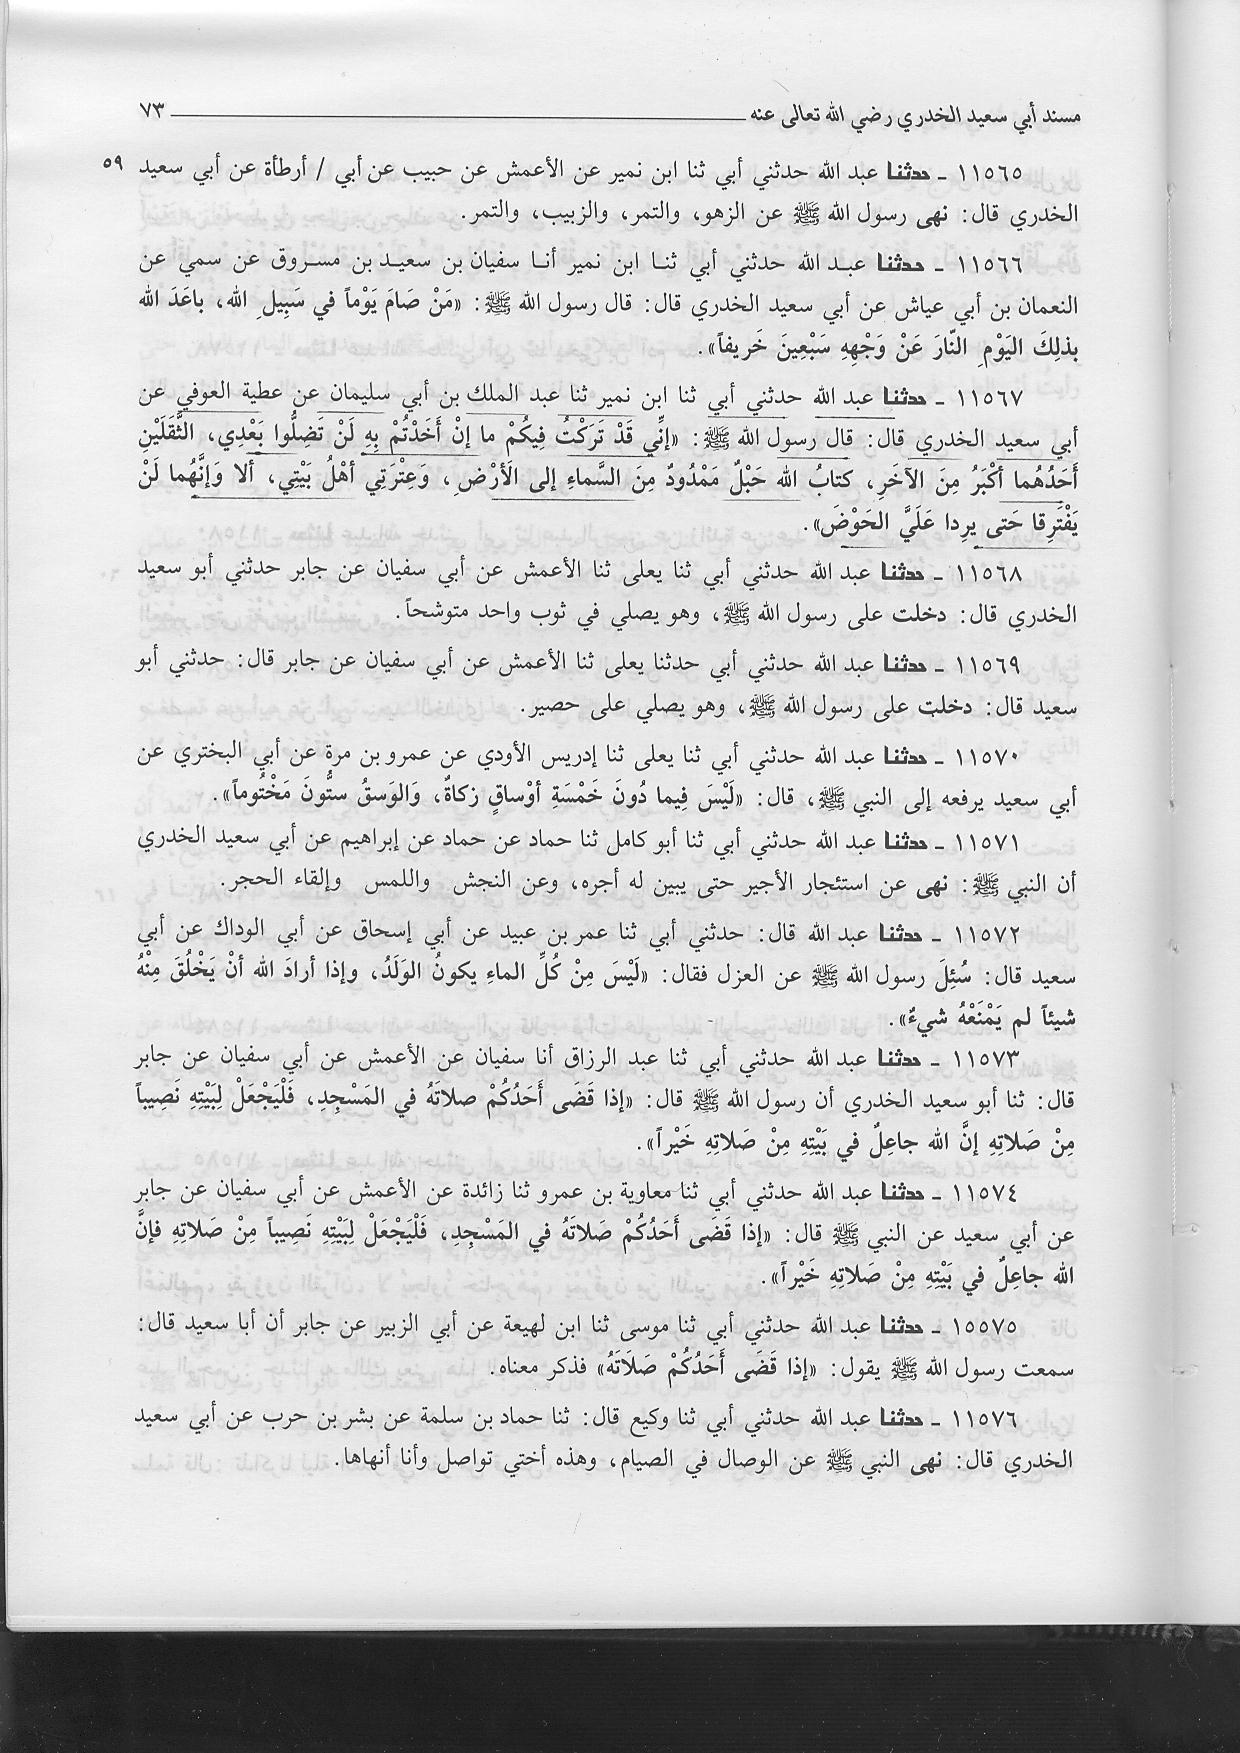 مسند أبي سعيد الخدري رضي الله تعالى عنه ٧٣
١١٥٦٥ ـ حدثنا عبد الله حدثني أبي ثنا ابن نمير عن الأعمش عن حبيب عن أبي / أرطأة عن أبي سعيد ٥٩
الخدري قال: نهى رسول الله ﷺ عن الزهو، والتمر، والزبيب، والتمر.
١١٥٦٦ ـ حدثنا عبد الله حدثني أبي ثنا ابن نمير أنا سفيان بن سعيد بن مسروق عن سمي عن
النعمان بن أبي عياش عن أبي سعيد الخدري قال: قال رسول الله ﷺ: «مَنْ صَامَ يَوْماً في سَبِيلِ الله، باعَدَ الله
بذلِكَ اليَوْمِ النّارَ عَنْ وَجْهِهِ سَبْعِينَ خَريفاً».
١١٥٦٧ ـ حدثنا عبد الله حدثني أبي ثنا ابن نمير ثنا عبد الملك بن أبي سليمان عن عطية العوفي عن
أبي سعيد الخدري قال: قال رسول الله ﷺ: «إنِّي قَدْ تَرَكْتُ فِيكُمْ ما إنْ أَخَذْتُمْ بِهِ لَنْ تَضِلُّوا بَعْدِي، الثَّقَلَيْنِ
أَحَدُهُما أكْبَرُ مِنَ الآخَرِ، كتابُ الله حَبْلٌ مَمْدُودٌ مِنَ السَّماءِ إلى الَأرْضِ، وَعِتْرَتِي أهْلُ بَيْتِي، ألا وَإنَّهُما لَنْ
يَفْتَرِقا حَتى يرِدا عَلَيَّ الحَوْضَ».
١١٥٦٨ ـ حدثنا عبد الله حدثني أبي ثنا يعلى ثنا الأعمش عن أبي سفيان عن جابر حدثني أبو سعيد
الخدري قال: دخلت على رسول الله ﷺ، وهو يصلي في ثوب واحد متوشحاً.
١١٥٦٩ ـ حدثنا عبد الله حدثني أبي حدثنا يعلى ثنا الأعمش عن أبي سفيان عن جابر قال: حدثني أبو
سعيد قال: دخلت على رسول الله ﷺ، وهو يصلي على حصير.
١١٥٧٠ ـ حدثنا عبد الله حدثني أبي ثنا يعلى ثنا إدريس الأودي عن عمرو بن مرة عن أبي البختري عن
أبي سعيد يرفعه إلى النبي ﷺ، قال: «لَيْسَ فِيما دُونَ خَمْسَةِ أوْساقٍ زكاةٌ، وَالوَسقُ ستُّونَ مَخْتُوماً».
١١٥٧١ ـ حدثنا عبد الله حدثني أبي ثنا أبو كامل ثنا حماد عن حماد عن إبراهيم عن أبي سعيد الخدري
أن النبي ﷺ: نهى عن استئجار الأجير حتى يبين له أجره، وعن النجش واللمس وإلقاء الحجر.
١١٥٧٢ ـ حدثنا عبد الله قال: حدثني أبي ثنا عمر بن عبيد عن أبي إسحاق عن أبي الوداك عن أبي
سعيد قال: سُئِلَ رسول الله ﷺ عن العزل فقال: «لَيْسَ مِنْ كُلِّ الماءِ يكونُ الوَلَدُ، وإذا أرادَ الله أنْ يَخْلُقَ مِنْهُ
شيئاً لم يَمْنَعْهُ شيءٌ».
١١٥٧٣ ـ حدثنا عبد الله حدثني أبي ثنا عبد الرزاق أنا سفيان عن الأعمش عن أبي سفيان عن جابر
قال: ثنا أبو سعيد الخدري أن رسول الله ﷺ قال: «إذا قَضَى أَحَدُكُمْ صلاتَهُ في المَسْجِدِ، فَلْيَجْعَلْ لِبَيْتِهِ نَصِيباً
مِنْ صَلاتِهِ إنَّ الله جاعِلٌ في بَيْتِهِ مِنْ صَلاتِهِ خَيْراً».
١١٥٧٤ ـ حدثنا عبد الله حدثني أبي ثنا معاوية بن عمرو ثنا زائدة عن الأعمش عن أبي سفيان عن جابر
عن أبي سعيد عن النبي ﷺ قال: «إذا قَضَى أَحَدُكُمْ صَلاتَهُ في المَسْجِدِ، فَلْيَجْعَلْ لِبَيْتِهِ نَصِيباً مِنْ صَلاتِهِ فإنَّ
الله جاعِلٌ في بَيْتِهِ مِنْ صَلاتِهِ خَيْراً».
١٥٥٧٥ ـ حدثنا عبد الله حدثني أبي ثنا موسى ثنا ابن لهيعة عن أبي الزبير عن جابر أن أبا سعيد قال:
سمعت رسول الله ﷺ يقول: «إذا قَضَى أَحَدُكُمْ صَلَاتَهُ» فذكر معناه.
١١٥٧٦ ـ حدثنا عبد الله حدثني أبي ثنا وكيع قال: ثنا حماد بن سلمة عن بشر بن حرب عن أبي سعيد
الخدري قال: نهى النبي ﷺ عن الوصال في الصيام، وهذه أختي تواصل وأنا أنهاها.